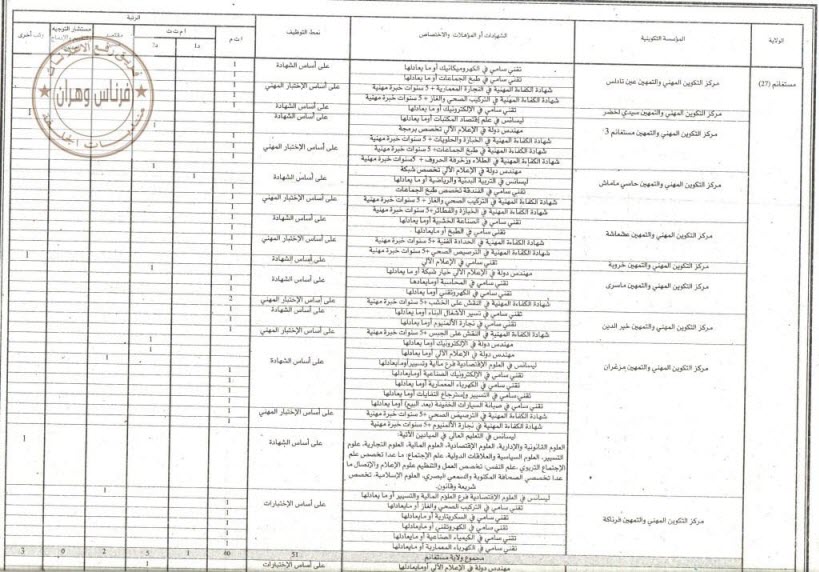 الرتبة
الولاية
المؤسسة التكوينية
الشهادات أو المؤهلات والاختصاص
نمط التوظيف
ا ت م
ا م ت ت
د1
د2
مقتصد
مستشار التوجيه
رتب أخرى
مستغانم (27)
تقني سامي في الكهروميكانيك أو ما يعادلها
على أساس الشهادة
1
مركز التكوين المهني والتمهين عين تادلس
تقني سامي في طبخ الجماعات أو ما يعادلها
1
شهادة الكفاءة المهنية في النجارة المعمارية + 5 سنوات خبرة مهنية
على أساس الإختبار المهني
1
شهادة الكفاءة المهنية في التركيب الصحي والغاز + 5 سنوات خبرة مهنية
1
مركز التكوين المهني والتمهين سيدي لخضر
تقني سامي في الإلكترونيك أو ما يعادلها
على أساس الشهادة
ليسانس في علم إقتصاد المكتبات أوما يعادلها
على أساس الشهادة
1
مركز التكوين المهني والتمهين مستغانم 3
مهندس دولة في الإعلام الآلي تخصص برمجة
شهادة الكفاءة المهنية في الخبازة والحلويات + 5 سنوات خبرة مهنية
على أساس الإختبار المهني
شهادة الكفاءة المهنية في طبخ الجماعات+ 5 سنوات خبرة مهنية
شهادة الكفاءة المهنية في الطلاء وزخرفة الحروف + 5سنوات خبرة مهنية
مركز التكوين المهني والتمهين حاسي ماماش
مهندس دولة في الإعلام الآلي تخصص شبكة
على أساس الشهادة
1
ليسانس في التربية البدنية والرياضية أو ما يعادلها
1
تقني سامي في الفندقة تخصص طبخ الجماعات
شهادة الكفاءة المهنية في التركيب الصحي والغاز + 5 سنوات خبرة مهنية
على أساس الإختبار المهني
شهادة الكفاءة المهنية في الخبازة والفطائر+5 سنوات خبرة مهنية
مركز التكوين المهني والتمهين عشعاشة
تقني سامي في الصناعة الخشبية أو ما يعادلها
على أساس الشهادة
تقني سامي في الطبخ أو مايعادلها
شهادة الكفاءة المهنية في الحدادة الفنية +5 سنوات خبرة مهنية
على أساس الإختبار المهني
شهادة الكفاءة المهنية في الترصيص الصحي +5 سنوات خبرة مهنية
مركز التكوين المهني والتمهين خروبة
تقني سامي في الإعلام الآلي
1
مركز التكوين المهني والتمهين ماسرى
مهندس دولة في الإعلام الآلي خيار شبكة أو ما يعادلها
على أساس الشهادة
1
تقني سامي في المحاسبة أومايعادلها
1
تقني سامي في الكهروتقني أوما يعادلها
1
شهادة الكفاءة المهنية في النقش على الخشب +5 سنوات خبرة مهنية
على أساس الإختبار المهني
2
مركز التكوين المهني والتمهين خير الدين
تقني سامي في تسير الأشغال البناء أوما يعادلها
على أساس الشهادة
1
تقني سامي في نجارة الألمنيوم أوما يعادلها
1
شهادة الكفاءة المهنية في النقش على الجبس +5 سنوات خبرة مهنية
على أساس الإختبار المهني
1
مركز التكوين المهني والتمهين مزغران
مهندس دولة في الإلكترونيك أوما يعادلها
على أساس الشهادة
1
مهندس دولة في الإعلام الآلي أوما يعادلها
1
ليسانس في العلوم الإقتصادية فرع مالية وتسييرأومايعادلها
1
تقني سامي في الإلكترونيك الصناعية أومايعادلها
1
تقني سامي في الكهرباء المعمارية أوما يعادلها
1
تقني سامي في التسيير وإسترجاع النفايات أوما يعادلها
1
تقني سامي في صيانة السيارات الخفيفة (بعد البيع) أوما يعادلها
1
شهادة الكفاءة المهنية في الترصيص الصحي +5 سنوات خبرة مهنية
على أساس الإختبار المهني
1
شهادة الكفاءة المهنية في نجارة الألمنيوم +5 سنوات خبرة مهنية
1
ليسانس في التعليم العالي في الميادين الآتية:
على أساس الشهادة
1
العلوم القانونية والإدارية، العلوم الإقتصادية، العلوم المالية، العلوم التجارية، علوم
التسيير، العلوم السياسية والعلاقات الدولية، علم الإجتماع: ما عدا تخصص علم
الإجتماع التربوي ،علم النفس: تخصص العمل والتنظيم علوم الإعلام والإتصال ما
عدا تخصصي الصحافة المكتوبة والسمعي البصري، العلوم الإسلامية، تخصص
شريعة وقانون.
مركز التكوين المهني والتمهين فرناكة
ليسانس في العلوم الإقتصادية فرع العلوم المالية والتسيير أو ما يعادلها
على أساس الإختبارات
1
تقني سامي في التركيب الصحي والغاز أو مايعادلها
1
تقني سامي في السكريتارية أو مايعادلها
1
تقني سامي في الكهروتقني أو مايعادلها
1
تقني سامي في الكيمياء الصناعية أو مايعادلها
1
تقني سامي في الكهرباء المعمارية أو مايعادلها
1
مجموع ولاية مستغانم
51
2
0
3
مهندس دولة في الإعلام الآلي أومايعادلها
على أساس الإختبارات
1
فريق رفع الإعلانات
فرناس وهران
منتديات الجلفة